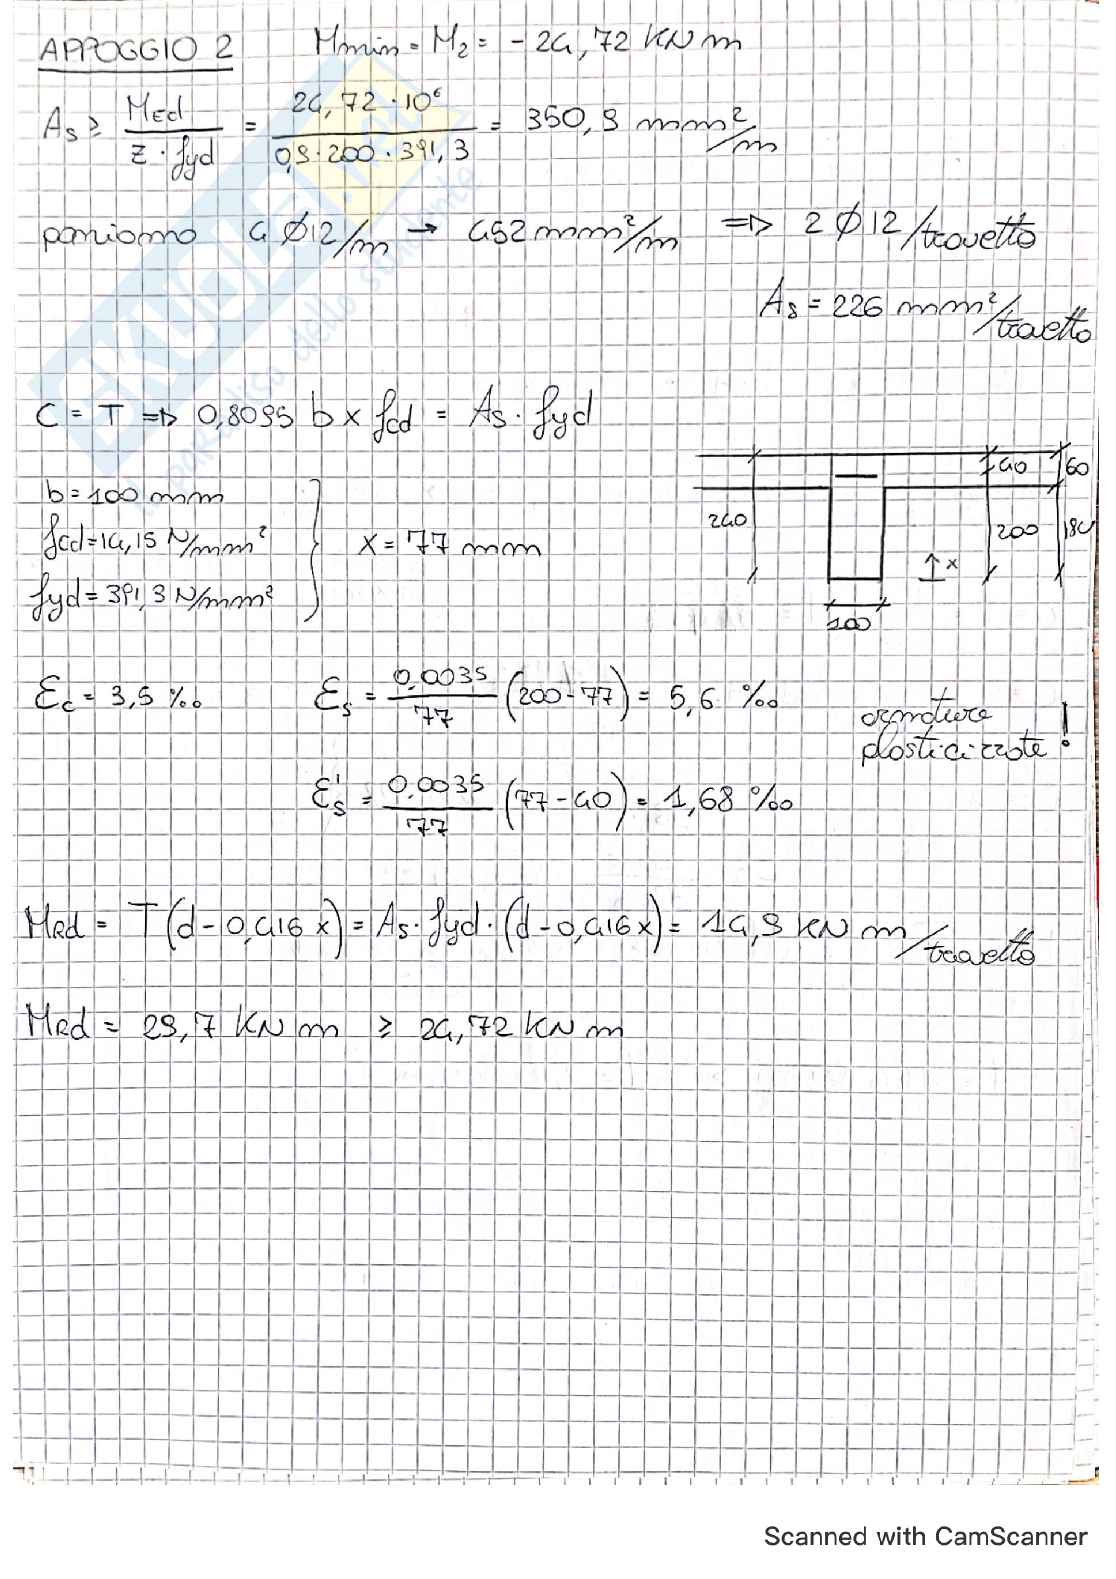 APPOGGIO 2   Mmin = M2 = - 24,72 KN m
As ≥ MEd / (z · fyd) = 24,72 · 10⁶ / (0,9 · 200 · 391,3) = 350,9 mm²/m
poniamo 4 Ø12/m → 452 mm²/m => 2 Ø12/travetto
As = 226 mm²/travetto
C = T => 0,8095 b x fcd = As · fyd
b = 100 mm
fcd = 14,15 N/mm²
fyd = 391,3 N/mm²
x = 77 mm
240
40
60
200
180
x
100
εc = 3,5 ‰   εs = 0,0035 / 77 (200 - 77) = 5,6 ‰
armature
plasticizzate !
ε's = 0,0035 / 77 (77 - 40) = 1,68 ‰
MRd = T (d - 0,416 x) = As · fyd · (d - 0,416 x) = 14,9 KN m/travetto
MRd = 29,7 KN m ≥ 24,72 KN m
SKUOLA
il paradiso dello studente
Scanned with CamScanner